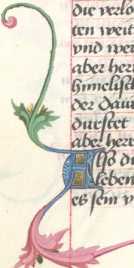 die verlo
ten weit
vnd wer
aber herr
himelisch
der dau
durstet
aber herr
Als du
leben
es sein w